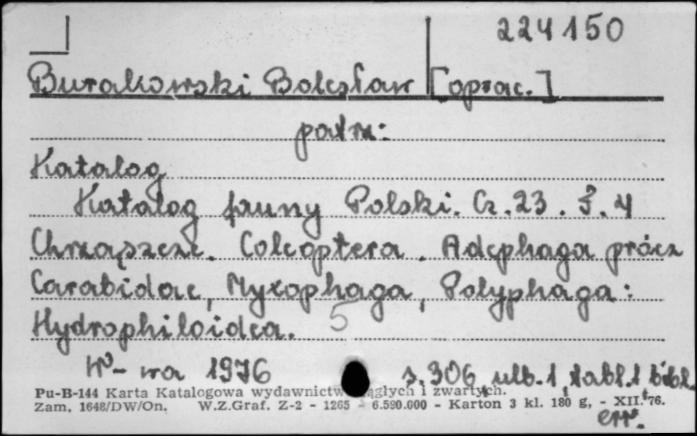 224150
Burakowski Bolesław [oprac.]
patrz:
Katalog
Katalog fauny Polski. Cz. 23. T. 4
Chrząszcze. Coleoptera. Adephaga prócz
Carabidae, Myxophaga, Polyphaga:
Hydrophiloidea. 5
W-wa 1976 s. 306 ulb. 1 tabl. 1 bibl.
Pu-B-144 Karta Katalogowa wydawnictw ciągłych i zwartych.
Zam. 1648/DW/On. W.Z.Graf. Z-2 - 1265 - 6.590.000 - Karton 3 kl. 180 g, - XII. 76.
err.